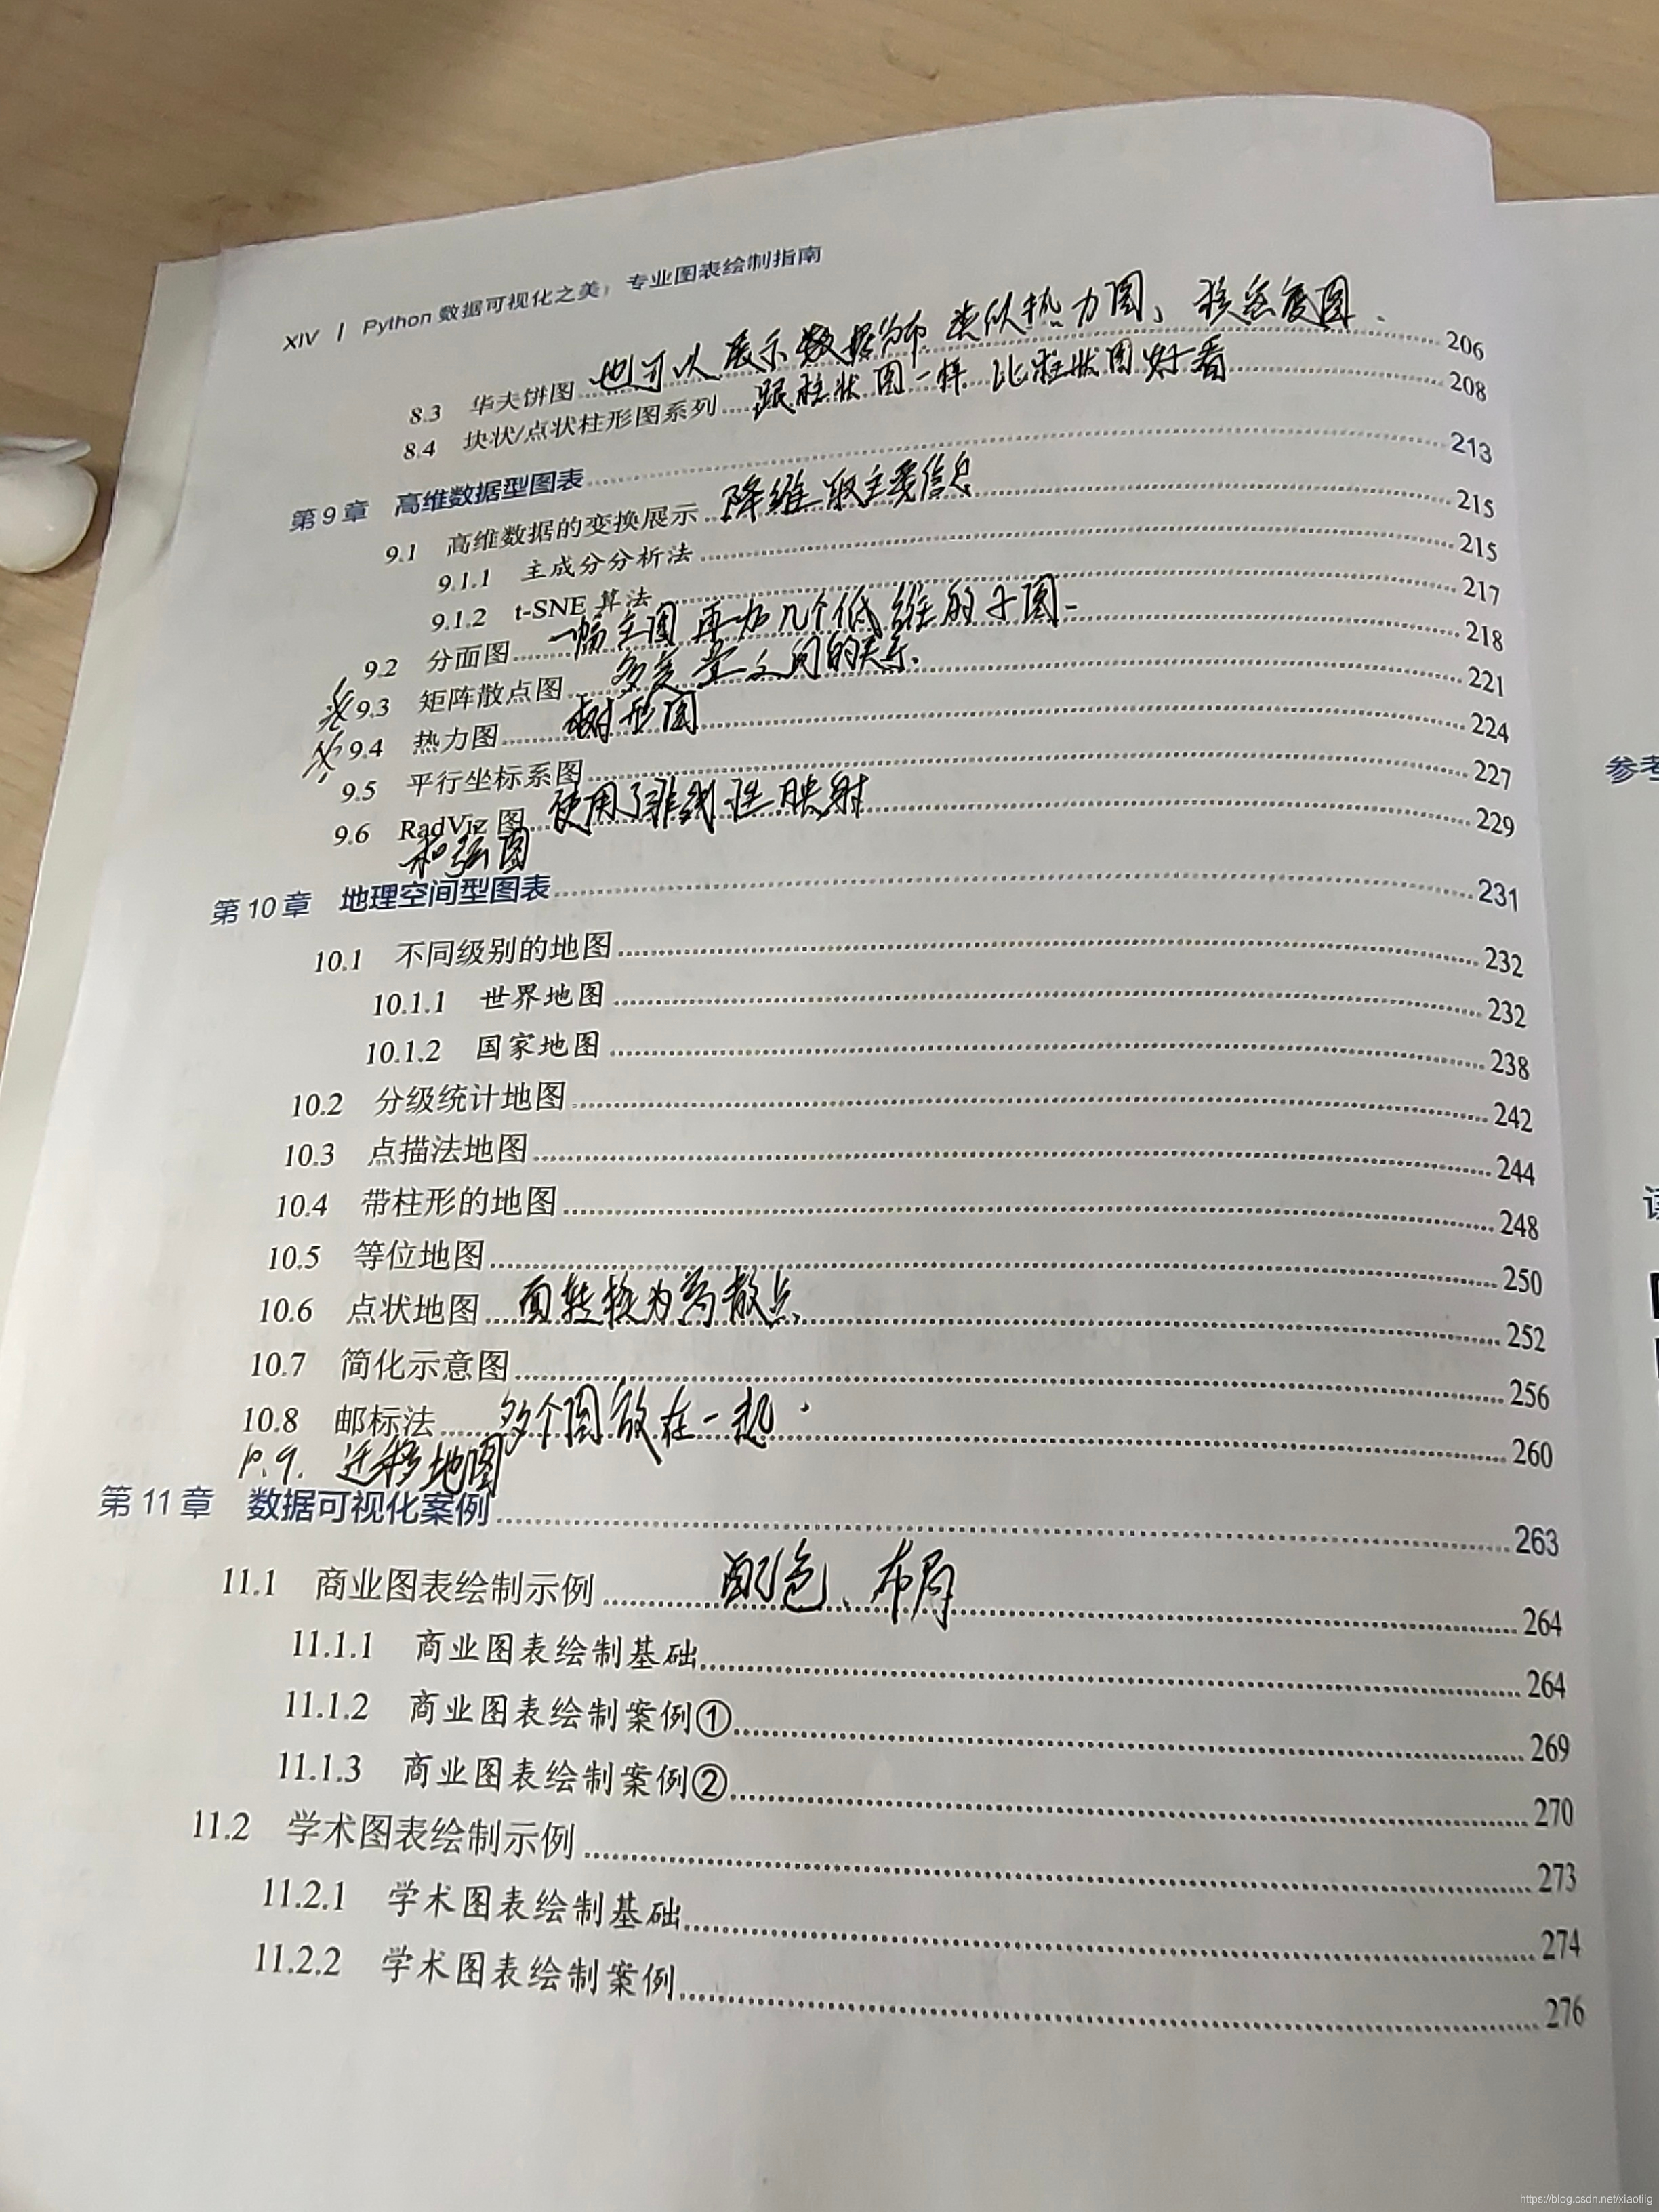 XIV | Python 数据可视化之美：专业图表绘制指南
8.3 华夫饼图 也可以展示数据分布 类似热力图、核密度图. 206
8.4 块状/点状柱形图系列 跟柱状图一样 比柱状图好看 208
第9章 高维数据型图表 213
9.1 高维数据的变换展示 降维 取主要信息 215
9.1.1 主成分分析法 215
9.1.2 t-SNE 算法 217
9.2 分面图 一幅主图 再加几个低维的子图 218
9.3 矩阵散点图 多变量之间的关系. 221
9.4 热力图 树形图 224
9.5 平行坐标系图 227
9.6 RadViz 图 使用了非线性映射 229
和弦图
第10章 地理空间型图表 231
10.1 不同级别的地图 232
10.1.1 世界地图 232
10.1.2 国家地图 238
10.2 分级统计地图 242
10.3 点描法地图 244
10.4 带柱形的地图 248
10.5 等位地图 250
10.6 点状地图 面转换为离散点 252
10.7 简化示意图 256
10.8 邮标法 多个图放在一起. 260
10.9. 迁移地图
第11章 数据可视化案例 263
11.1 商业图表绘制示例 配色、布局 264
11.1.1 商业图表绘制基础 264
11.1.2 商业图表绘制案例① 269
11.1.3 商业图表绘制案例② 270
11.2 学术图表绘制示例 273
11.2.1 学术图表绘制基础 274
11.2.2 学术图表绘制案例 276
参考
https://blog.csdn.net/xiaotiig